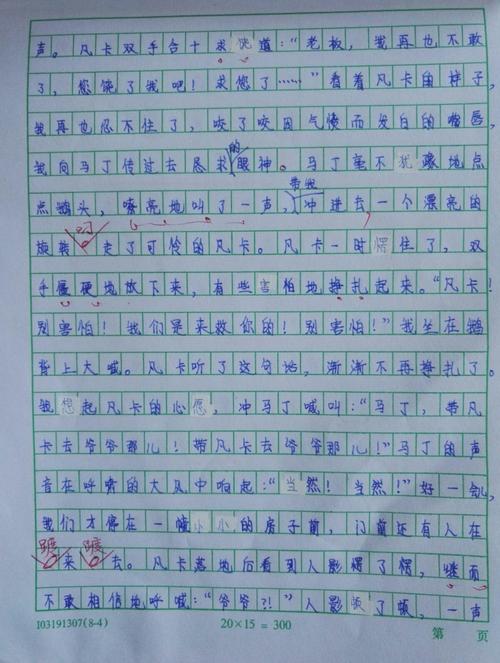 声。凡卡双手合十求饶道:“老板,我再也不敢
了,您饶了我吧!求您了……”看着凡卡的样子,
我再也忍不住了,咬了咬因气愤而发白的嘴唇
我向马丁传过去恳求的眼神。马丁毫不犹豫地点
点鹅头,嘹亮地叫了一声,带我冲进去一个漂亮的
旋转叼走了可怜的凡卡。凡卡一时愣住了,双
手僵硬地放下来,有些害怕地挣扎起来。“凡卡!
别害怕!我们是来救你的!别害怕!”我坐在鹅
背上大喊。凡卡听了这句话,渐渐不再挣扎了。
我想起凡卡的心愿,冲马丁喊叫:“马丁,带凡
卡去爷爷那儿!带凡卡去爷爷那儿!”马丁的声
音在呼啸的大风中响起:“当然!当然!”好一会儿,
我们才停在一幢小小的房子前,门前还有人在
踱来踱去。凡卡落地后看到人影愣了愣,继而
不敢相信地呼喊:“爷爷?!”人影顿了顿,一声
103191307(8-4) 20×15=300 第 页